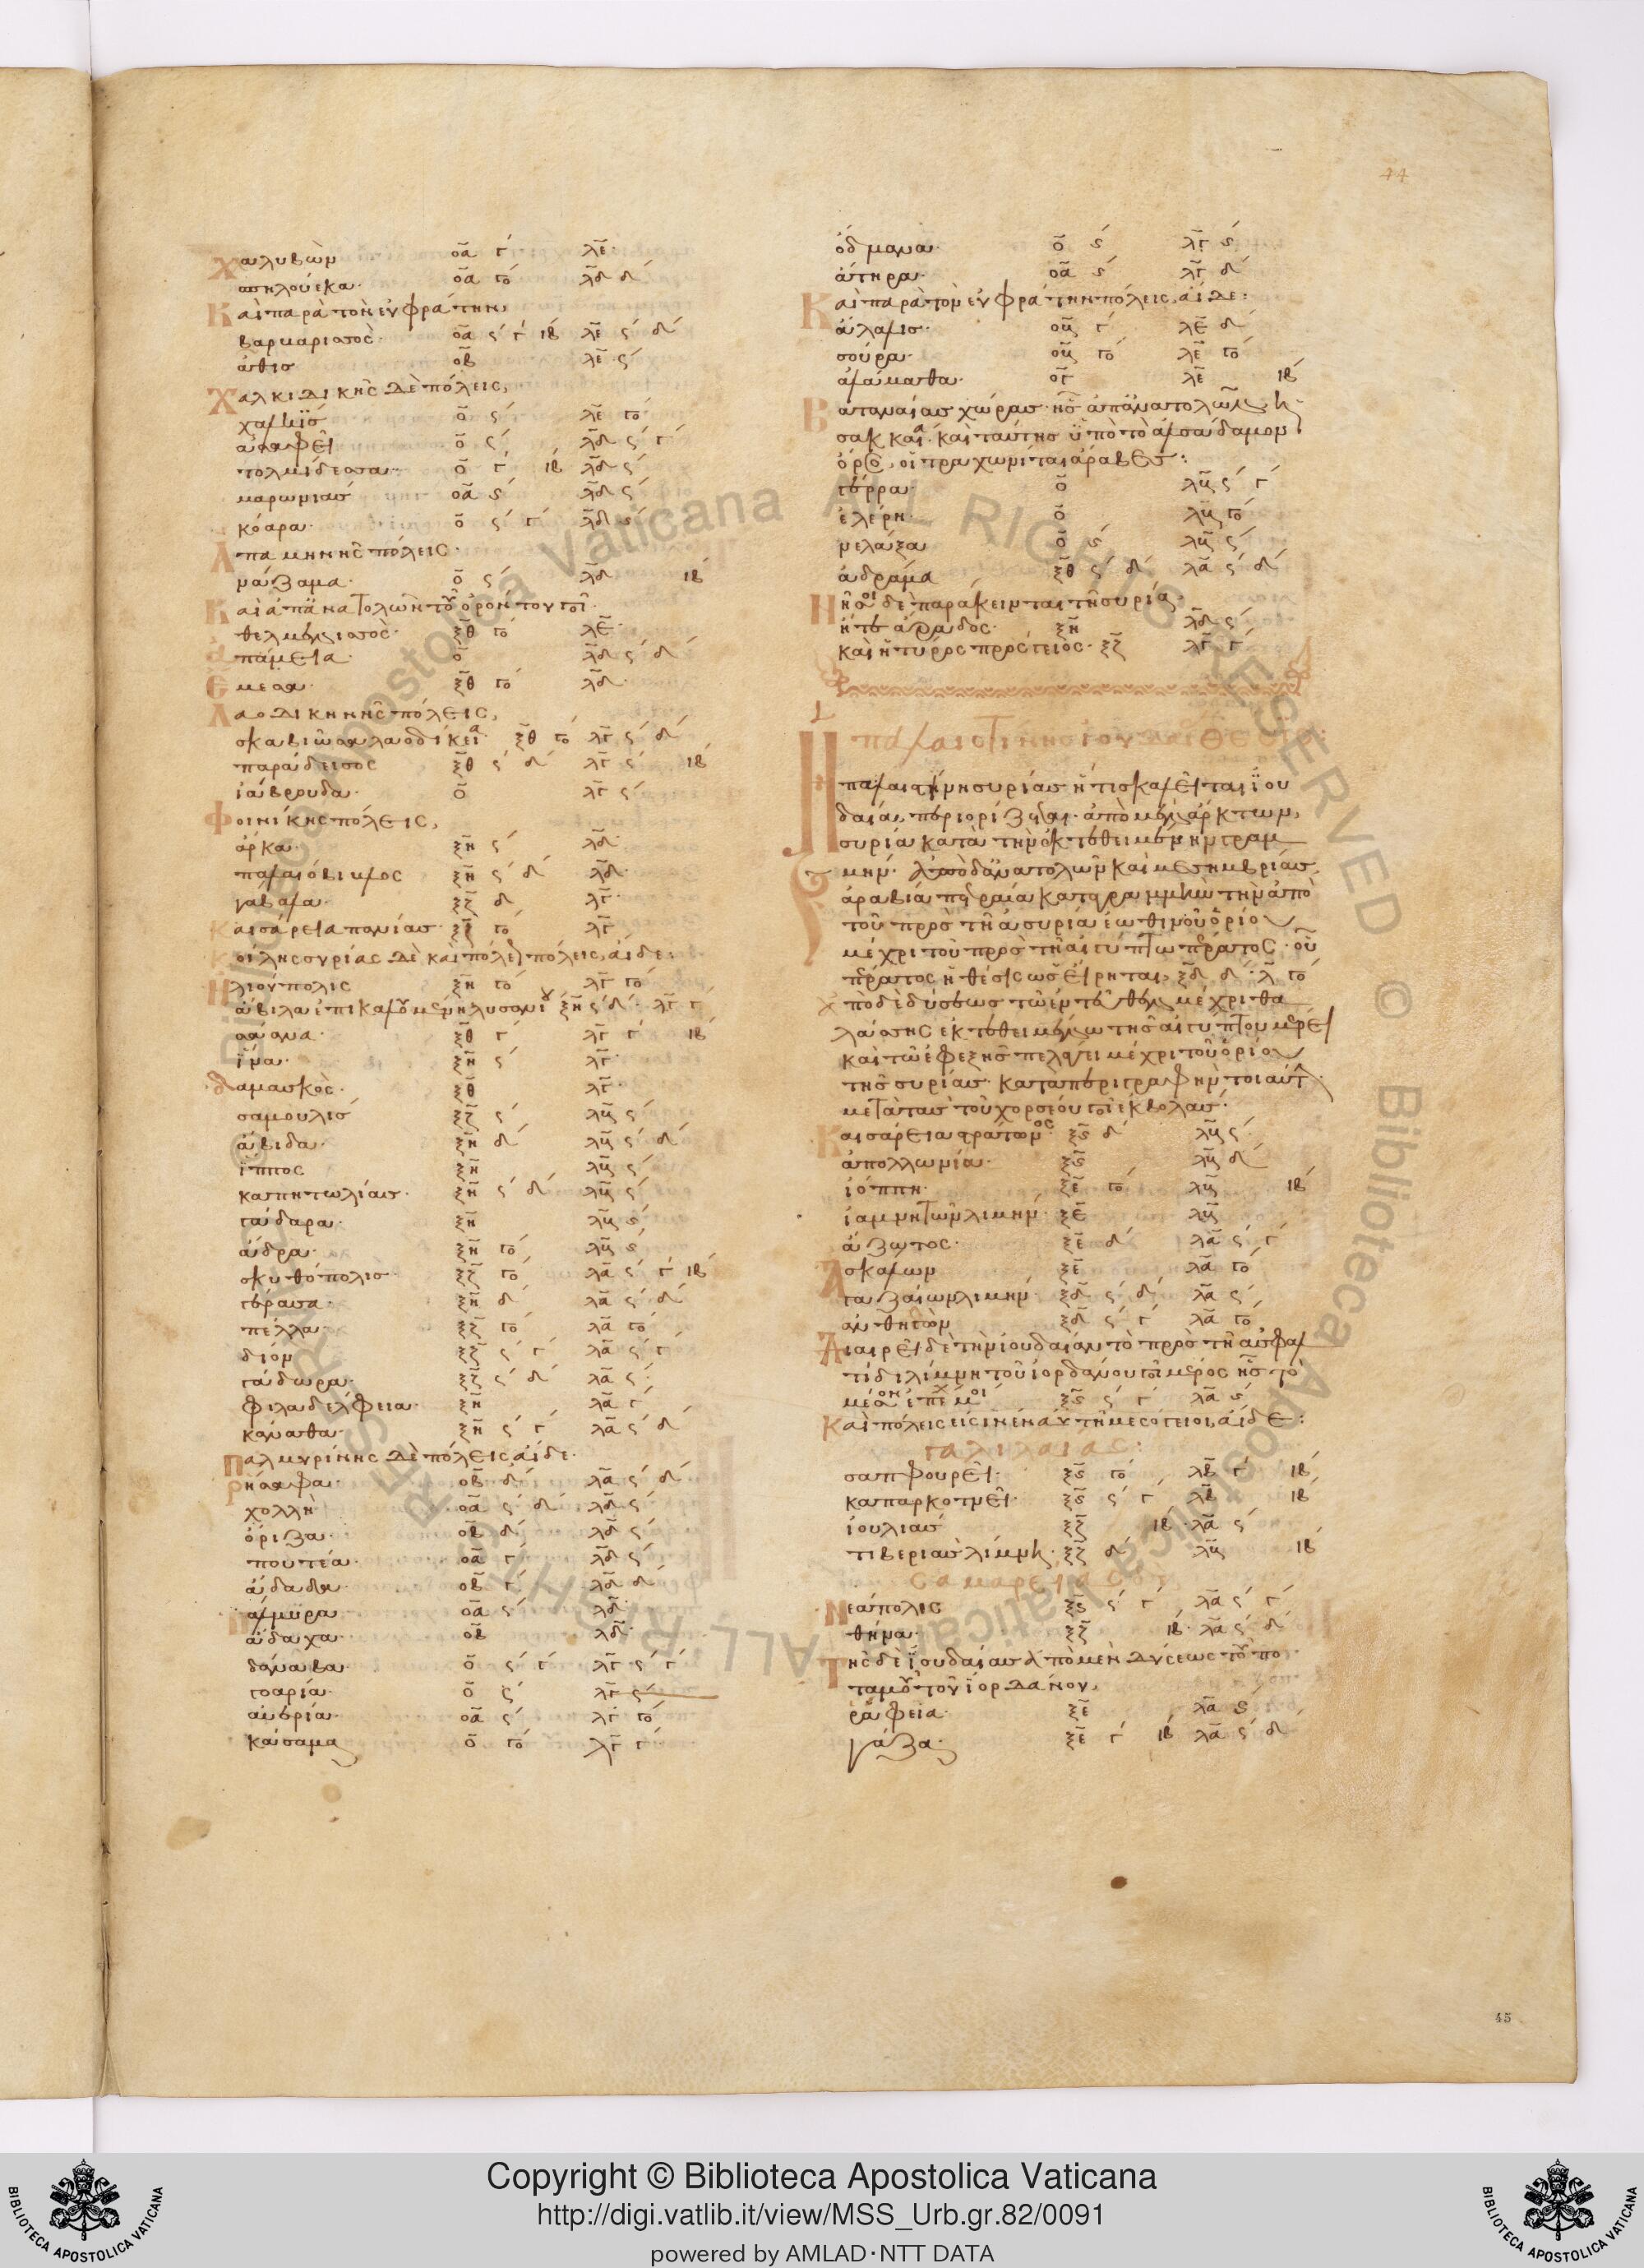 44
χαλυβὼν οα γʹ λε
σπηλούκα οα γοʹ λδ δʹ
Καὶ παρὰ τὸν εὐφράτην
βαρβαρισσὸς οα ςʹ γʹ ιβ λε ςʹ δʹ
ἄθις οβ λε ςʹ
Χαλκιδικῆς δὲ πόλεις
χαλκὶς ο ςʹ λε γοʹ
ἀσαφεῖ ο ςʹ λδ ςʹ γʹ
τολμίδεσσα ο γʹ ιβ λδ ςʹ
μαρωνιὰς οα ςʹ λδ ςʹ
κόαρα ο ςʹ γʹ λδ ςʹ
Ἀπαμηνῆς πόλεις
μάζαμα ο ςʹ λδ ιβ
Καὶ ἀπὸ ἀνατολῶν τοῦ ὀρόντου ποταμοῦ
θελμενισσὸς ξθ γοʹ λε
ἀπάμεια ο λδ ςʹ δʹ
ἔμεσα ξθ γοʹ λδ
Λαοδικηνῆς πόλεις
σκαβιῶσα λαοδίκεια ξθ γοʹ λγ ςʹ δʹ
παράδεισος ξθ ςʹ δʹ λγ ςʹ ιβ
ἰάβρουδα ο λγ ςʹ
Φοινίκης πόλεις
ἄρκα ξη ςʹ λδ
παλαιόβιβλος ξη ςʹ δʹ λδ
γαβαλα ξζ δ λγ
Καισάρεια πανίας ξζ γοʹ λγ
Κοίλης συρίας δὲ καὶ δεκαπόλεως πόλεις αἵδε
Ἡλιούπολις ξη γοʹ λγ γοʹ
ἄβιλα ἐπικαλουμένη λυσανίου ξη ςʹ δʹ λγ γʹ
σάανα ξθ γʹ λγ γʹ ιβ
ἴνα ξη ςʹ λγ
δαμασκὸς ξθ λγ
σαμουλὶς ξζ ςʹ λβ ςʹ
ἄβιδα ξη δʹ λβ ςʹ δʹ
ἵππος ξη λβ ςʹ
καπητωλίας ξη ςʹ δʹ λβ ςʹ
γάδαρα ξη λβ ςʹ
ἄδρα ξη γοʹ λβ ςʹ
σκυθόπολις ξζ γοʹ λα ςʹ γʹ ιβ
γέρασα ξη δʹ λα ςʹ δʹ
πέλλα ξζ γοʹ λα γοʹ
δίον ξζ ςʹ γʹ λα ςʹ γʹ
γάδωρα ξζ ςʹ δʹ λα ςʹ
φιλαδέλφεια ξη λα γʹ
κάναθα ξη ςʹ γʹ λα ςʹ δʹ
Παλμυρίνης δὲ πόλεις αἵδε
ῥήσαφα οβ δʹ λα ςʹ δʹ
χολλὴ οα ςʹ δʹ λδ ςʹ
ὄριζα οβ δʹ λδ ςʹ
πουτέα οα γʹ λδ ςʹ
ἄδαδα οβ γʹ λδ δʹ
παλμύρα οα ςʹ λδ
ἄδαχα οβ λδ
δάναβα ο ςʹ γʹ λγ ςʹ γʹ
γοαρία ο ςʹ λγ ςʹ
αὐερία οα ςʹ λγ γοʹ
κάσαμα ο γοʹ λγ γʹ
ὄδμανα ο ςʹ λγ ςʹ
ἄτηρα οα ςʹ λγ δʹ
Καὶ παρὰ τὸν εὐφράτην πόλεις αἵδε
ἄλαλις οβ γʹ λε δʹ
σούρα οβ γοʹ λε γοʹ
ἀλάμαθα ογ λε ιβ
Βαταναίας χώρας ἧς ἀπὸ ἀνατολῶν ἡ
σακκαία καὶ ταύτης ὑπὸ τὸ ἀλσάδαμον
ὄρος οἱ τραχωνῖται ἄραβες
γέρρα ο λβ ςʹ γʹ
ἐλέρη ο λβ γοʹ
νελάξα ο ςʹ λβ ςʹ
ἄδραμα ξθ ςʹ δʹ λα ςʹ δʹ
Νῆσοι δὲ παράκεινται τῇ συρίᾳ
ἥτε ἄραδος ξη λδ ςʹ
καὶ ἡ τύρος πρόσγειος ξζ λγ γʹ
Παλαιστίνης ἰουδαίας θέσις
Ἡ παλαιστίνη συρίας ἥτις καλεῖται ἰου
δαία περιορίζεται ἀπὸ μὲν ἄρκτων
συρία κατὰ τὴν ἐκτεθειμένην γραμ
μήν ἀπὸ δὲ ἀνατολῶν καὶ μεσημβρίας
ἀραβία πετραία κατὰ γραμμὴν τὴν ἀπὸ
τοῦ πρὸς τῇ συρία ἑωθινοῦ ὁρίου
μέχρι τοῦ πρὸς τῇ αἰγύπτω πέρατος οὗ
πέρατος ἡ θέσις ὡς εἴρηται ξδ δ λ γοʹ
ἀπὸ δὲ δύσεως τῶ ἐντεῦθεν μέχρι θα
λάσσης ἐκτεθειμένω τῆς αἰγύπτου μέρει
καὶ τῶ ἐφεξῆς πελάγει μέχρι τοῦ ὁρίου
τῆς συρίας κατὰ περιγραφὴν τοιαύτην
μετὰ τὰς τοῦ χορσέου ποταμοῦ ἐκβολὰς
Καισάρεια στράτωνος ξς δʹ λβ ςʹ
ἀπολλωνία ξς λβ δʹ
ἰόππη ξε γοʹ λβ ιβ
ἰαμνητῶν λιμήν ξε λβ
ἄζωτος ξε δʹ λα ςʹ γʹ
Ἀσκάλων ξε λα γοʹ
γαζαίων λιμήν ξδ ςʹ δʹ λα ςʹ
ἀνθηδὼν ξδ ςʹ γʹ λα γοʹ
Διαιρεῖ δὲ τὴν ἰουδαίαν τὸ πρὸς τῇ ἀσφαλ
τίδι λίμνη τοῦ ἰορδάνου ποταμοῦ μέρος ἧς τὸ
μέσον ἐπέχει μοι ξς ςʹ γʹ λα ςʹ
Καὶ πόλεις εἰσὶν ἐν αὐτῇ μεσόγειοι αἵδε
Γαλιλαίας
σαπφουρεῖ ξς γοʹ λβ γʹ ιβ
καπαρκοτνεῖ ξς ςʹ γʹ λβ ιβ
ἰουλιὰς ξζ ιβ λα ςʹ
τιβεριὰς λίμνη ξζ δʹ λβ ιβ
Σαμαρείας
Νεάπολις ξς ςʹ γʹ λα ςʹ γʹ
θήνα ξζ ιβ λα ςʹ δʹ
Τῆς δὲ ἰουδαίας ἀπὸ μὲν δύσεως τοῦ πο
ταμοῦ τοῦ ἰορδάνου
ῥάφεια ξε λα ςʹ
γάζα ξε γʹ ιβ λα ςʹ δʹ
45
Copyright © Biblioteca Apostolica Vaticana
http://digi.vatlib.it/view/MSS_Urb.gr.82/0091
powered by AMLAD·NTT DATA
BIBLIOTECA APOSTOLICA VATICANA
BIBLIOTECA APOSTOLICA VATICANA